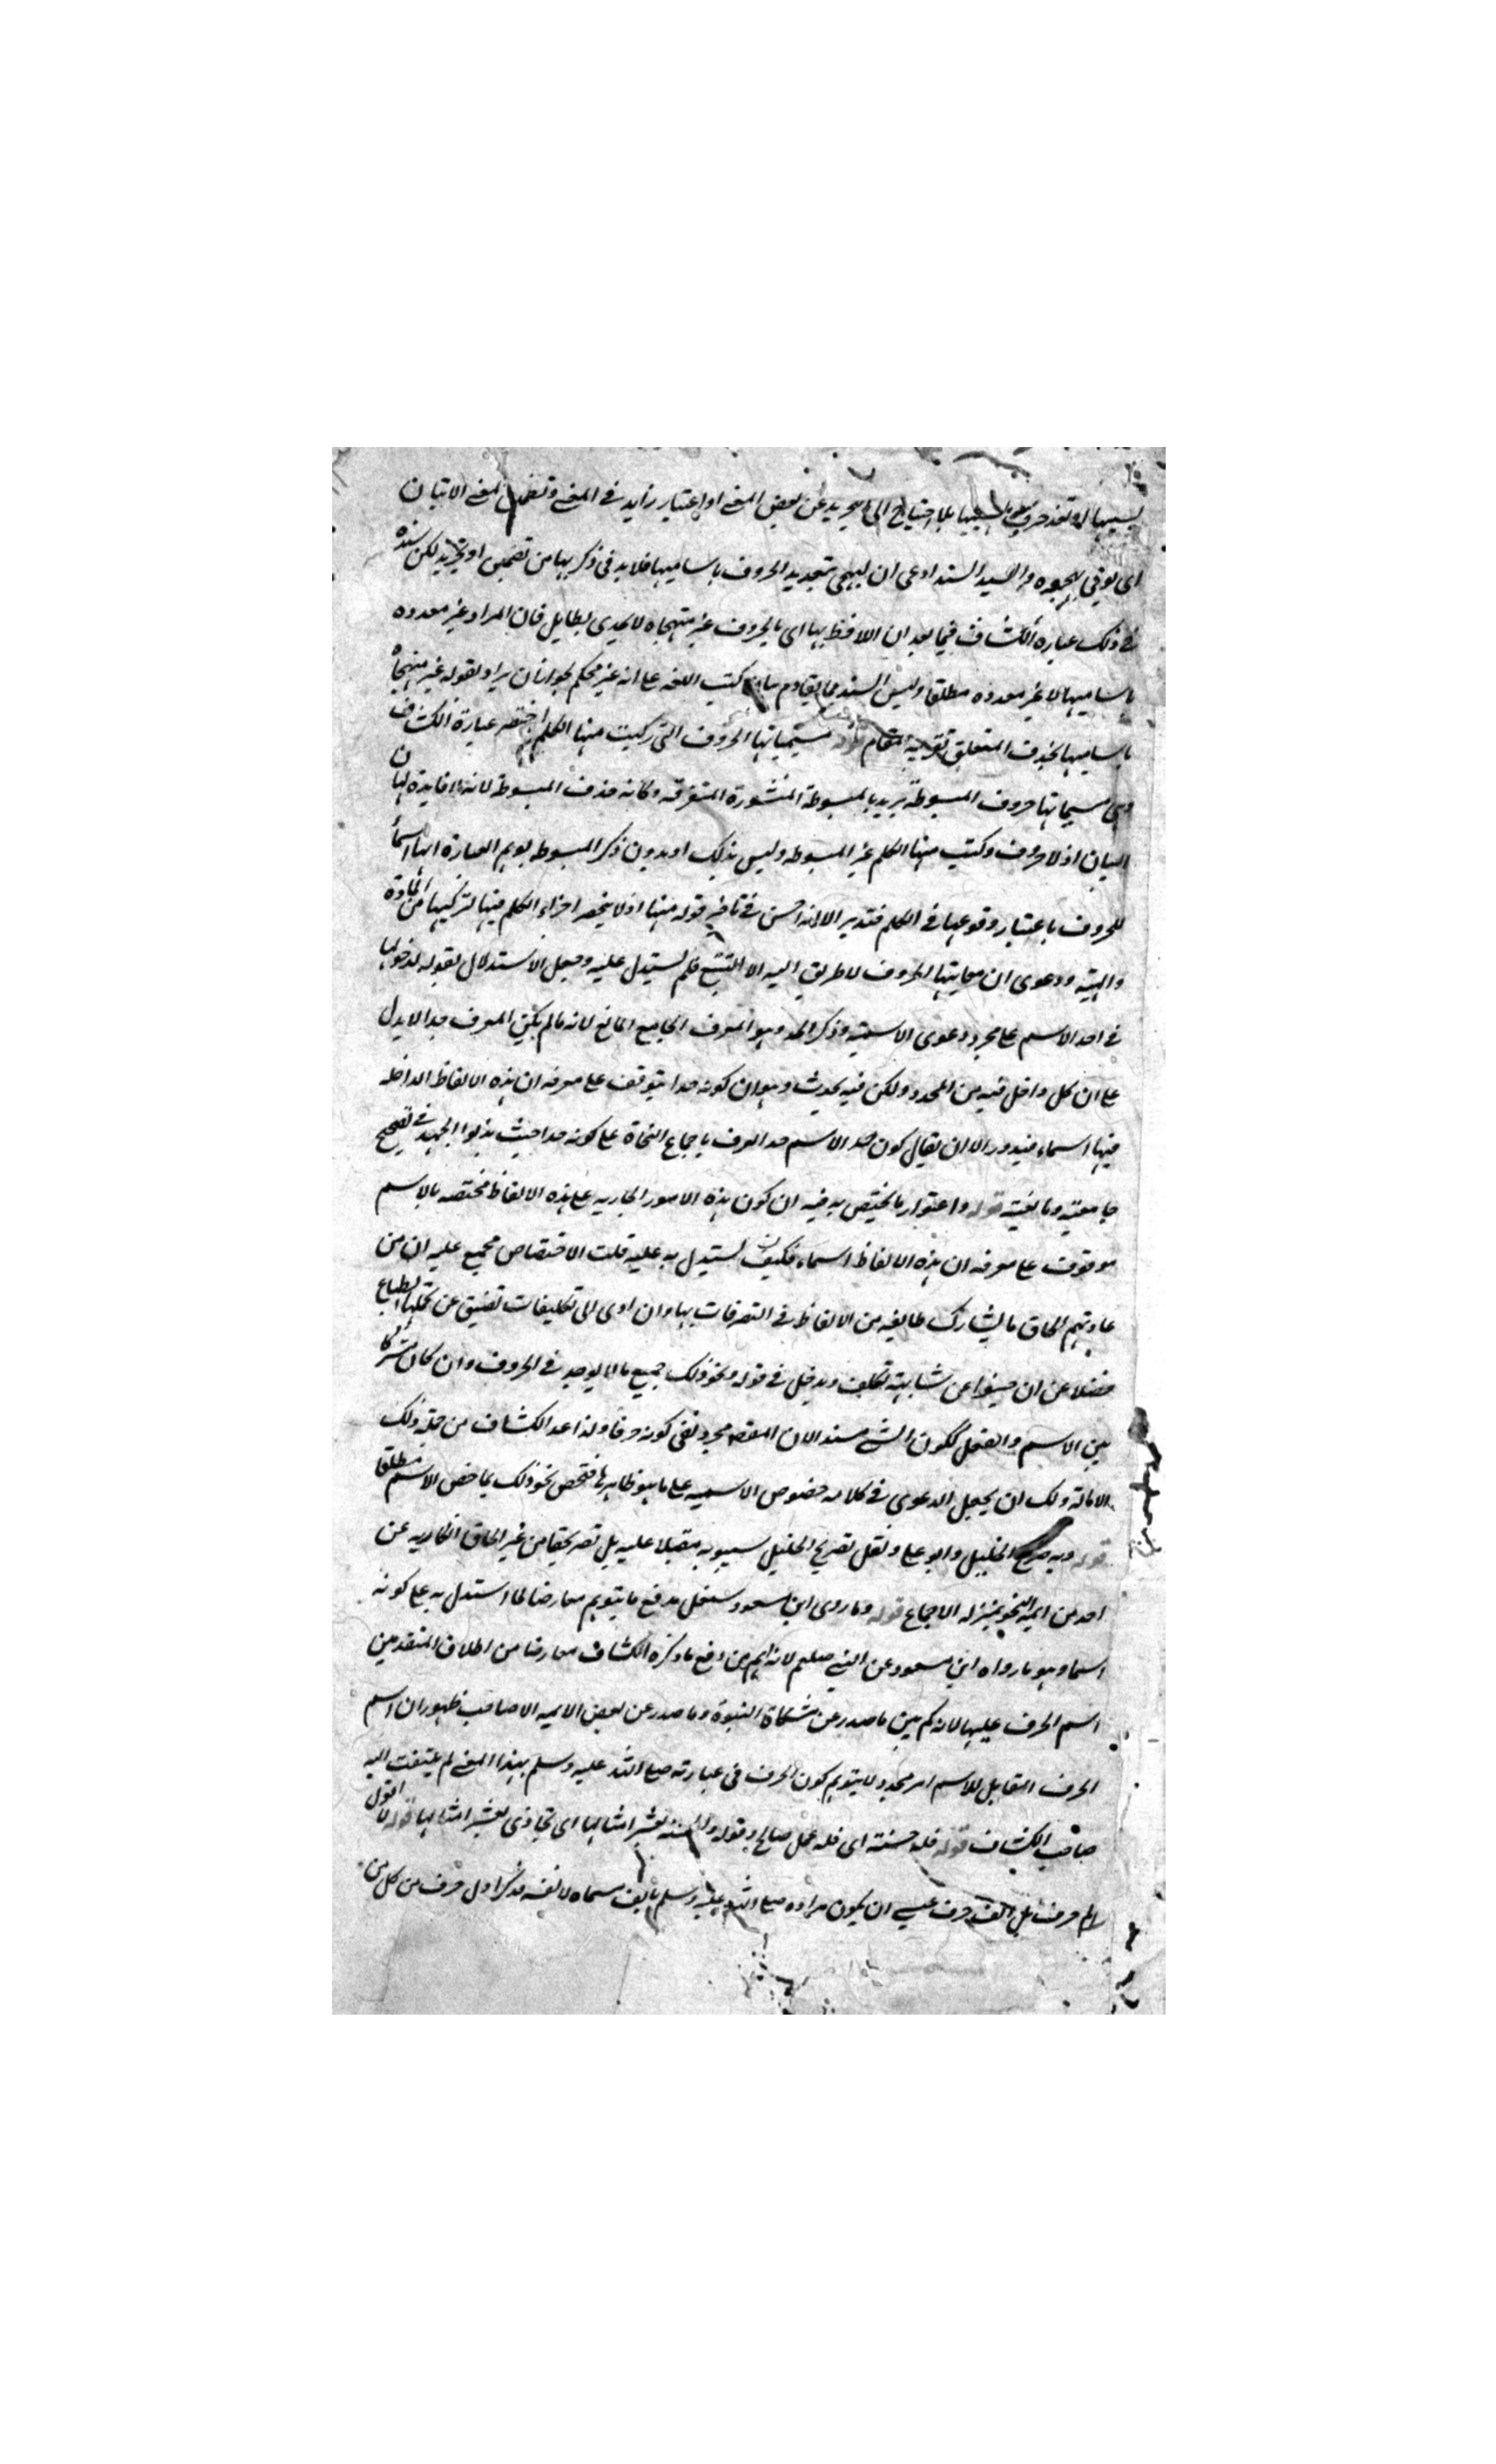 بلا احتياج الى تجريد عن بعض المعنى او اعتبار زايد فى المعنى وتضمين لمعنى الاتيان
اى يوتى والسيد السند ادعى ان التهجى تعديد الحروف باساميها فلا بد فى ذكر بها من تضمين او تجريد لكن سنده
فى ذلك عبارة الكشاف فيما بعد ان اللافظ بها اى بالحروف غير متهجاة لا يجدى بطايل فان المراد غير معدوده
باساميها لا غير معدوده مطلقا وليس السند مما يقاوم بيان كتب اللغه على انه غير محكم لجواز ان يراد بقوله غير متهجاة
باساميها بحذف المتعلق بقرينه المقام قوله مسمياتها الحروف التى ركبت منها الكلم اختصر عبارة الكشاف
وهى مسمياتها حروف المبسوطة يريد بالمبسوطة المنشورة المتفرقه وكانه حذف المبسوطة لانه لا فايدة لها ن
البيان اذ لا حروف ركبت منها الكلم غير المبسوطه وليس بذلك اذ بدون ذكر المبسوطه يوهم العبارة انها اسما
للحروف باعتبار وقوعها فى الكلم فتدبر الا انه احسن فى تاخير قوله منها اذ لا ينحصر اجزاء الكلم فيها لتركيبها من المادة
والهيئه ودعوى ان مسمياتها الحروف لا طريق اليه الا التتبع فلم يستدل عليه وجعل الاستدلال بقوله لدخولها
فى احد الاسم على مجرد دعوى الاسميه وذكر الحد وهو المعرف الجامع المانع لانه ما لم يكن المعرف حدا لا يدل
على ان كل داخل فيه من المحدود ولكن فيه بحث وهو ان كونه حدا يتوقف على معرفه ان هذه الالفاظ الداخله
فيها اسماء فيدور الا ان يقال كون حد الاسم حدا عرف باجماع النحاة على كونه حدا حيث بذلوا الجهد فى تصحيح
جامعيته ومانعيته قوله واعتوار ما يختص به فيه ان كون هذه الامور الجاريه على هذه الالفاظ مختصه بالاسم
موقوف على معرفه ان هذه الالفاظ اسماء فكيف يستدل به عليه قلت الاختصاص مجمع عليه اذ من
عادتهم الحاق ما يشارك طايفه من الالفاظ فى التصرفات بها وان ادى الى تكليفات تضيق عن تحملها الطباع
فضلا عن ان شايبة تكلف ويدخل فى قوله ونحو ذلك جميع ما لا يوجد فى الحروف وان كان مشتركا
بين الاسم والفعل ككون الشى مسندا لان المقصد مجرد نفى كونه حرفا ولذا عد الكشاف من جملة ذلك
الامالة ولك ان يجعل الدعوى فى كلامه خصوص الاسميه على ما هو ظاهرها فتخص نحو ذلك بما خص الاسم مطلقا
قوله وبه صرح الخليل وابو على ونقل تصريح الخليل سيبويه مقبلا عليه بل تصريحهما من غير الحاق انكاريه عن
احد من ايمه النحو بمنزله الاجماع قوله وما روى ابن مسعود ستغل بدفع ما يتوهم معارضا لما استدل به على كونه
اسما وهو ما رواه ابن مسعود عن النبى صلعم لانه اهم من دفع ما ذكره الكشاف معارضا من اطلاق المتقدمين
اسم الحرف عليها لانه كم بين ما صدر عن مشكاة النبوة وما صدر عن بعض الايمه الا صاحب ظهور ان اسم
الحرف المقابل للاسم امر مجدد لا يتوهم كون الحرف فى عبارته صلى الله عليه وسلم بهذا المعنى لم يلتفت اليه
صاحب الكشاف قوله فله حسنة اى فله عمل صالح وقوله والحسنه بعشر امثالها اى تجازى بعشر امثالها قوله لا اقول
الم حرف بل الف حرف عسى ان يكون مراده صلى الله عليه وسلم بالف مسماه لا نفسه فذكر اول حرف من كل من